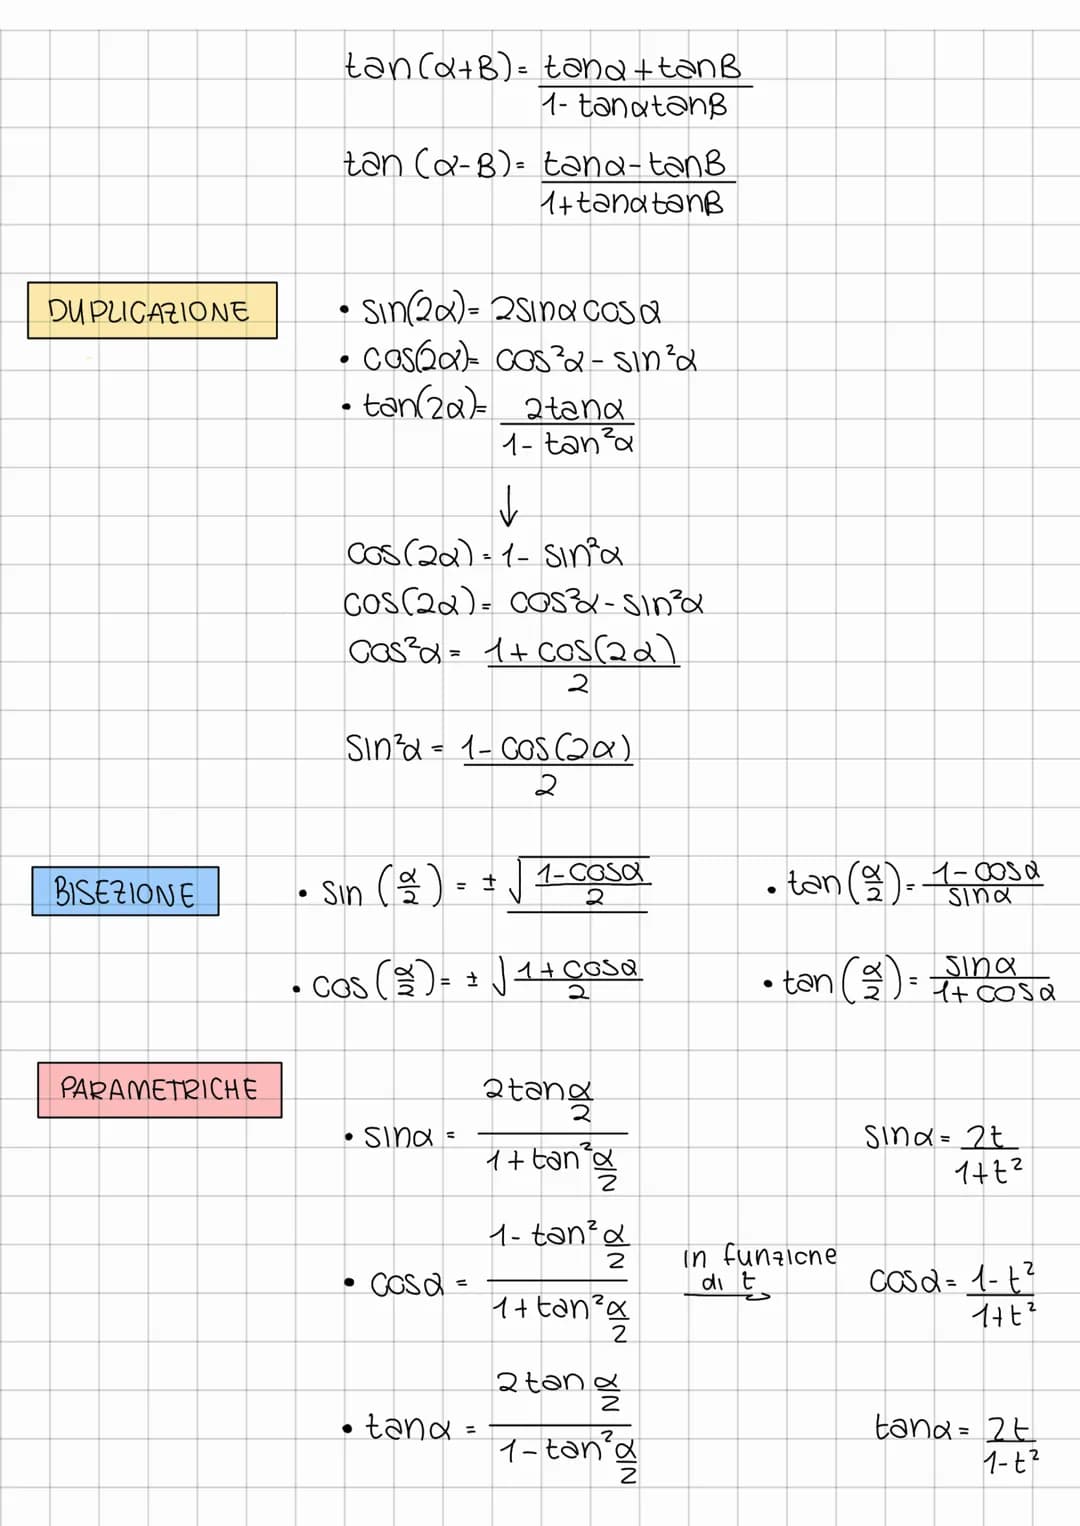 tan(α+β)= tanα+tanβ
1-tanαtanβ
tan(α-β)= tanα-tanβ
1+tanαtanβ
DUPLICAZIONE
• sin(2α)= 2sinαcosα
• cos(2α)= cos²α-sin²α
• tan(2α)= 2tanα
1-tan²α
↓
cos(2α)=1-sin²α
cos(2α)= cos²α-sin²α
cos²α= 1+cos(2α)
2
sin²α= 1-cos(2α)
2
BISEZIONE
• sin(α/2)= ±√(1-cosα/2)
• tan(α/2)= 1-cosα/sinα
• cos(α/2)= ±√(1+cosα/2)
• tan(α/2)= sinα/1+cosα
PARAMETRICHE
• sinα= 2tan α/2
1+tan² α/2
sinα= 2t
1+t²
• cosα= 1-tan² α/2
1+tan² α/2
in funzione
di t
cosα= 1-t²
1+t²
• tanα= 2tan α/2
1-tan² α/2
tanα= 2t
1-t²